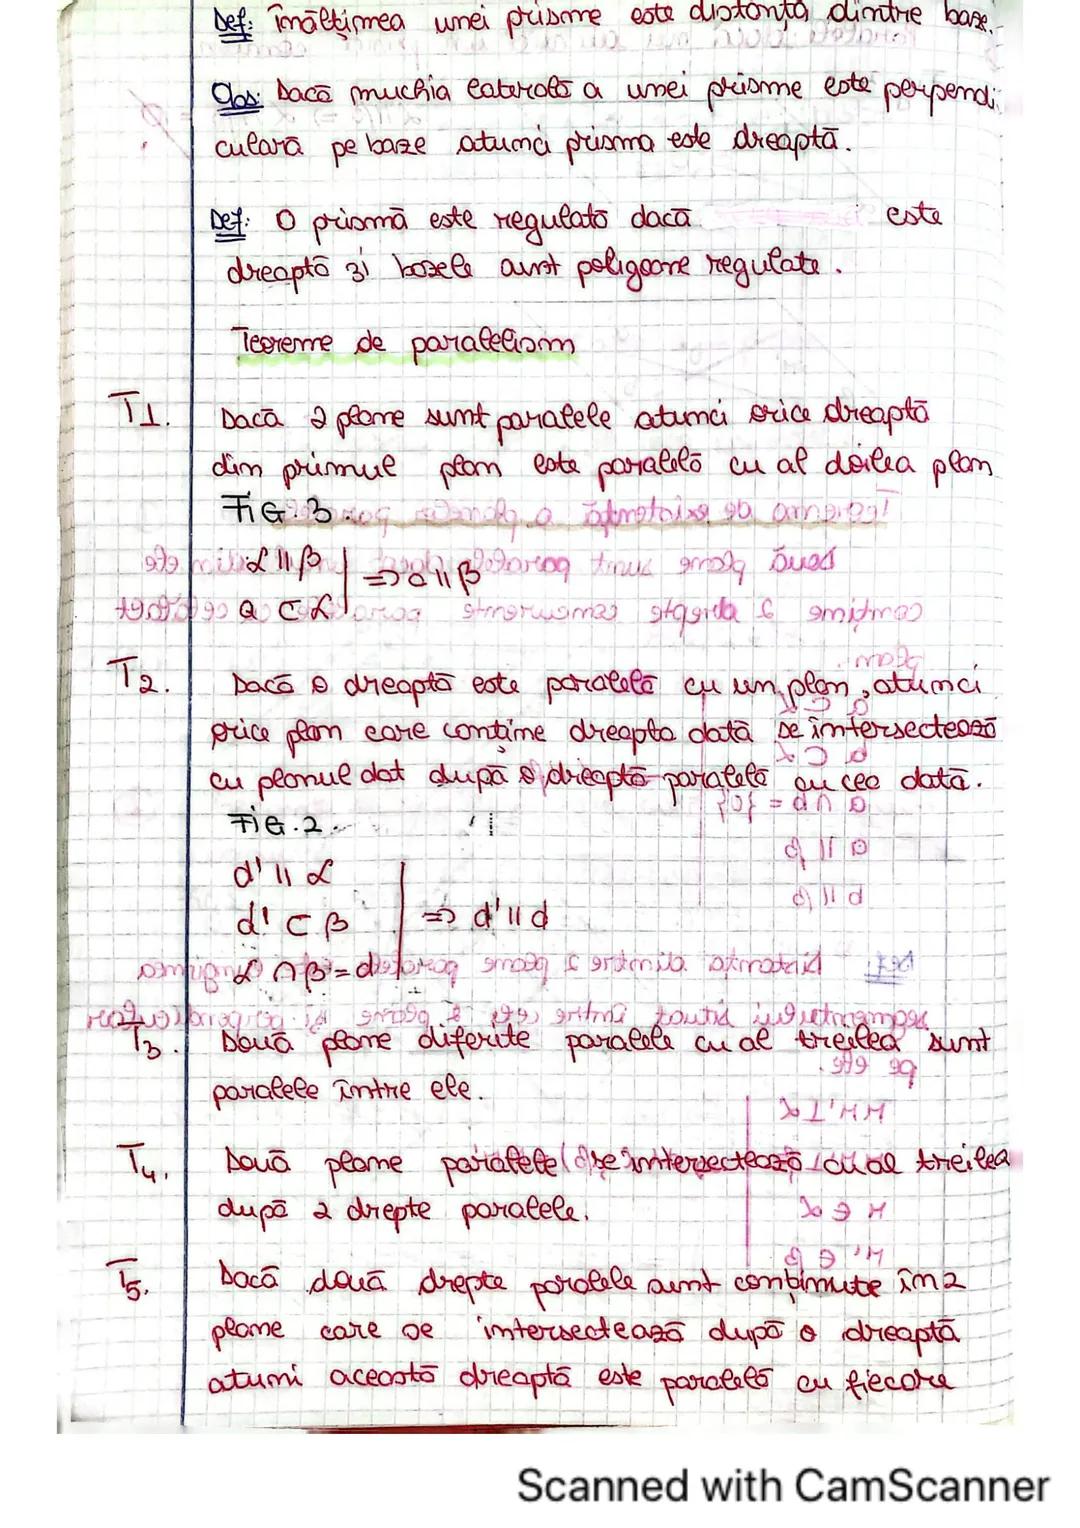 Def: înălțimea unei prisme este distanța dintre baze.
Obs: Dacă muchia laterală a unei prisme este perpendi
culară pe baze atunci prisma este dreaptă.
Def: O prismă este regulată dacă este
dreaptă și bazele sunt poligoane regulate.
Teoreme de paralelism
T1. Dacă 2 plane sunt paralele atunci orice dreaptă
din primul plan este paralelă cu al doilea plan
FIG.3.
α || β
=> a || β
a ⊂ α
T2. Dacă o dreaptă este paralelă cu un plan, atunci
orice plan care conține dreapta dată se intersectează
cu planul dat după o dreaptă paralelă cu cea dată.
FIG.2.
d' || α
d' ⊂ β => d' || d
α ∩ β = d
T3. Două plane diferite paralele cu al treilea sunt
paralele între ele.
T4. Două plane paralele se intersectează cu al treilea
după 2 drepte paralele.
T5. Dacă două drepte paralele sunt conținute în 2
plane care se intersectează după o dreaptă
atuni această dreaptă este paralelă cu fiecare
Scanned with CamScanner